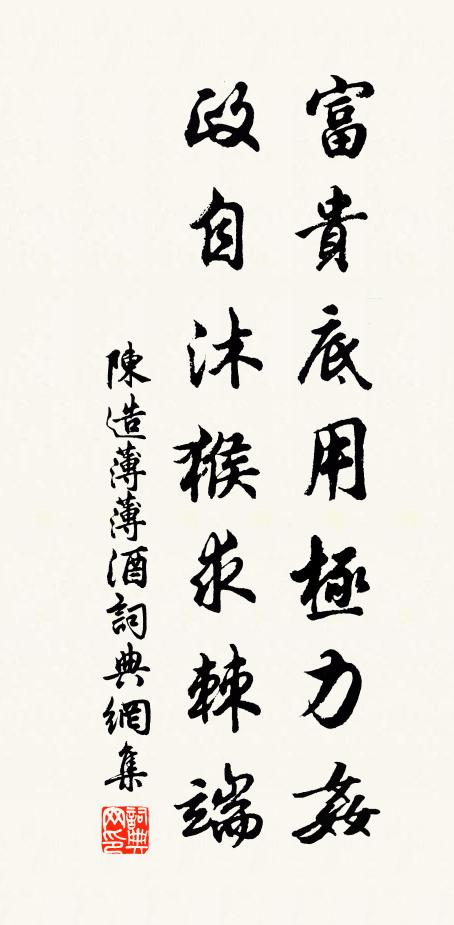 富貴底用極力姦
政自沐猴求棘端
陳造薄薄酒詞典網集
詞典网印